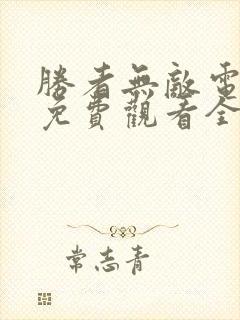 勝者無敵電
免費觀看全
常志青